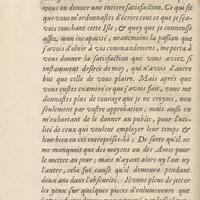 vous en donner une entiere satisfaction. Ce qui fit
que vous m'ordonnastes d'écrire tout ce que je sça-
vois touchant cette Isle; & quoy que je connusse
assez, mon incapacité, neantmoins la passion que
j'avois d'obeïr à vos commandemens, me porta à
vous donner la satisfaction que vous aviez, si
instamment desirée de moy, qui n'avois d'autre
but que celle de vous plaire. Mais aprés que
vous eustes examiné ce que j'avois fait, vous me
donnastes plus de courage que je ne croyois, non
seulement par vostre approbation, mais aussi en
m'exhortant de le donner au public, pour l'uti-
lité de ceux qui veulent employer leur temps &
leur bien en ces entreprises-là. De sorte qu'il ne
me manquoit que des moyens ou des Amis pour
le mettre au jour; mais n'ayant alors ny l'un ny
l'autre, cela fut cause qu'il demeura pendant
deux ans dans l'obscurité. Il vous pleut de jetter
les yeux sur quelques pieces d'enlumineure que